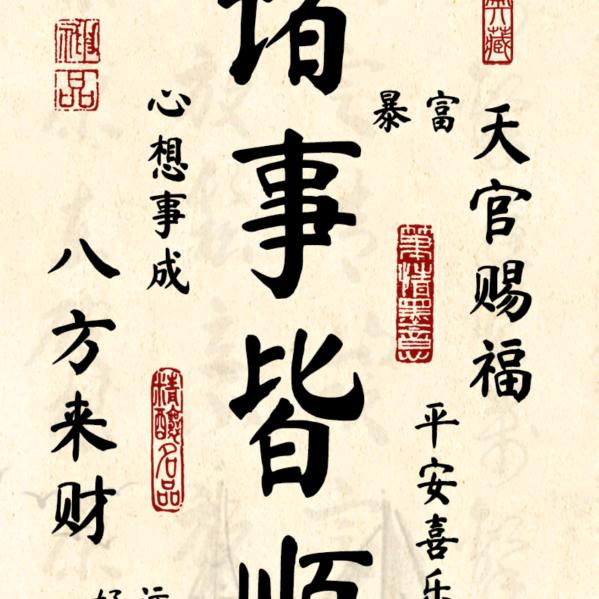 典藏
天官赐福
暴富
筆情墨意
平安喜乐
诸事皆顺
心想事成
精酿名品
好运
神品
八方来财